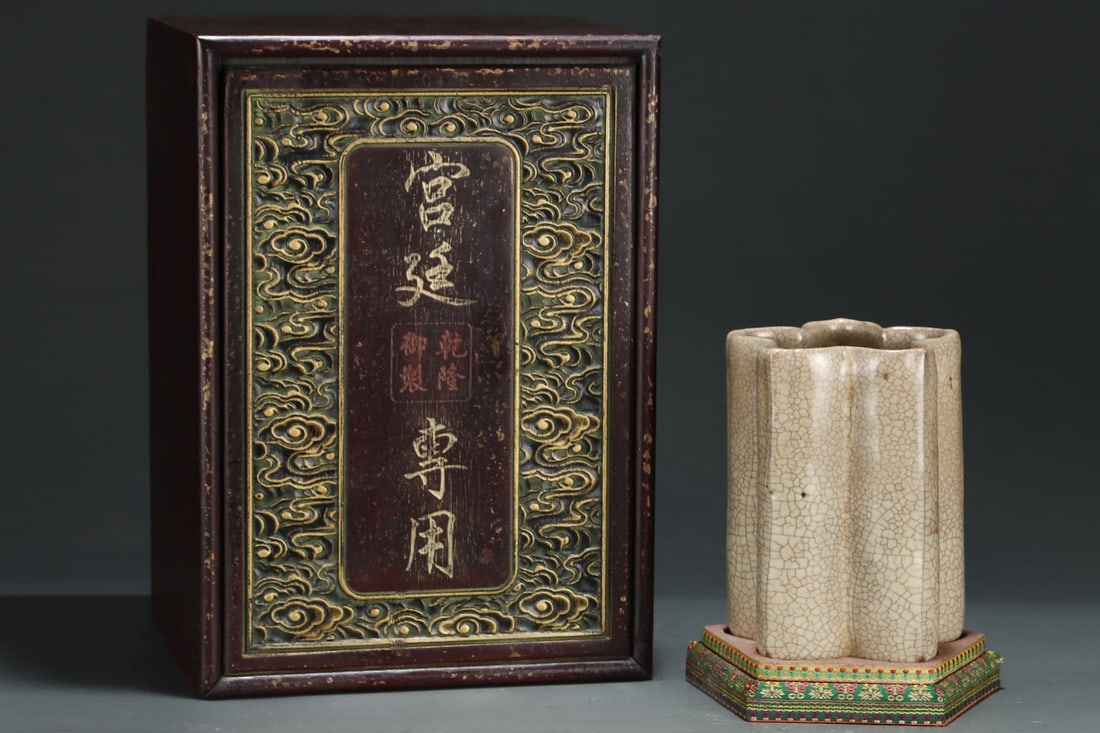 宫廷
乾隆
御製
專用